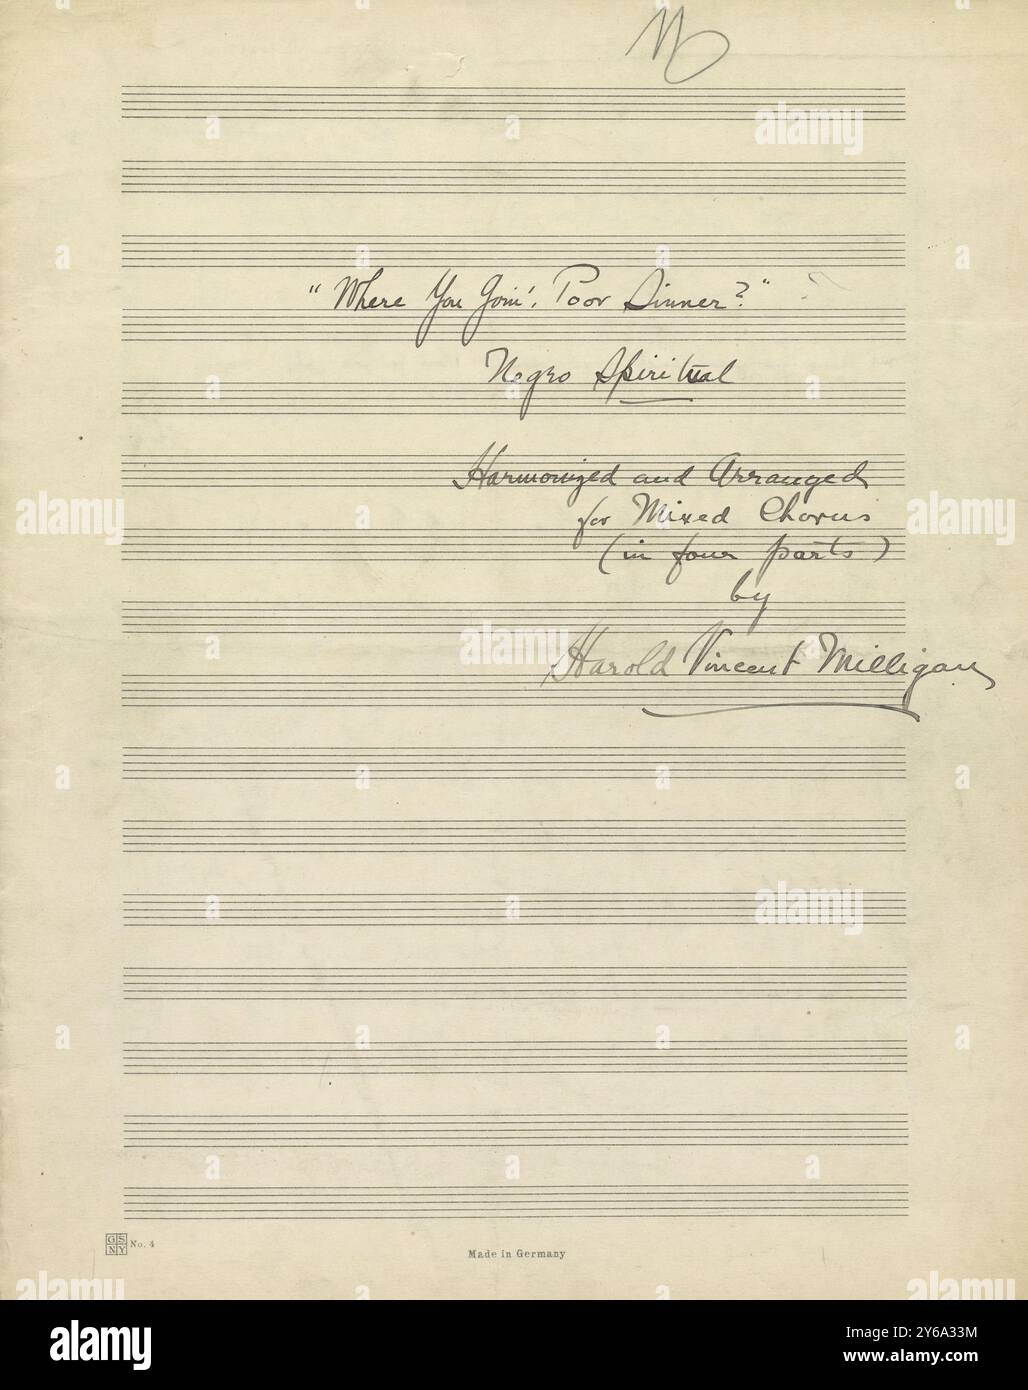 "Where You Goin', Poor Sinner?"
Negro Spiritual
Harmonized and Arranged
for Mixed Chorus
(in four parts)
by
Harold Vincent Milligan
GS
NY
No. 4
Made in Germany
alamy
Image ID: 2Y6A33M
www.alamy.com